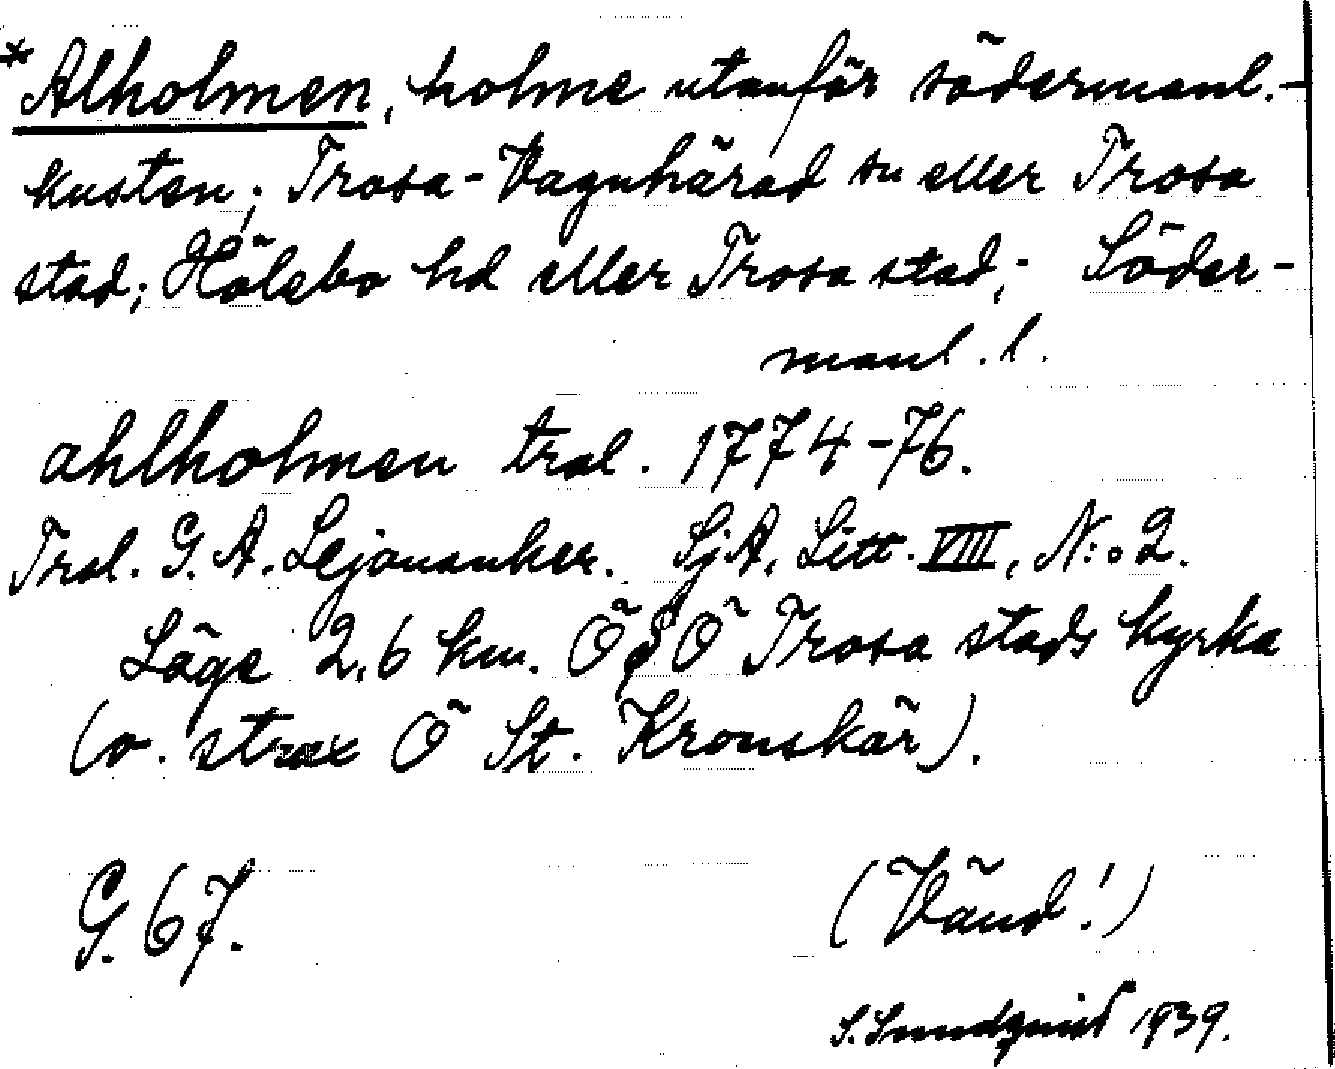 *Alholmen, holme utanför södermanl.-
kusten; Trosa-Vagnhärad sn eller Trosa
stad; Hölebo hd eller Trosa stad; Söder-
manl. l.
ahlholmen tral. 1774-76.
Tral. G. A. Lejonanker. SjA, Litt. VIII, N:o 2.
Läge 2,6 km. Ö&Ö Trosa stads kyrka
(o. strax Ö St. Kronskär).
G. 67.
(Vänd!)
S. Sundqvist 1939.